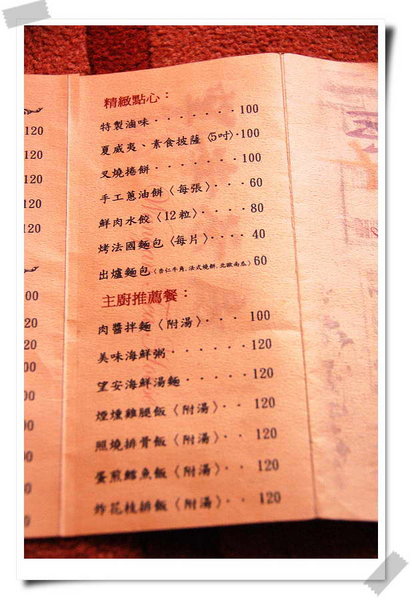 精緻點心：
特製滷味‧‧‧‧‧‧‧‧100
夏威夷、素食披薩〈5吋〉‧100
叉燒捲餅‧‧‧‧‧‧‧‧100
手工蔥油餅〈每張〉‧‧‧60
鮮肉水餃〈12粒〉‧‧‧‧80
烤法國麵包〈每片〉‧‧‧40
出爐麵包(杏仁牛角.法式燒餅.北歐南瓜)60
主廚推薦餐：
肉醬拌麵〈附湯〉‧‧‧100
美味海鮮粥‧‧‧‧‧‧‧120
望安海鮮湯麵‧‧‧‧‧‧120
煙燻雞腿飯〈附湯〉‧‧120
照燒排骨飯〈附湯〉‧‧120
蛋煎鱈魚飯〈附湯〉‧‧120
炸花枝排飯〈附湯〉‧‧120
120
120
120
120